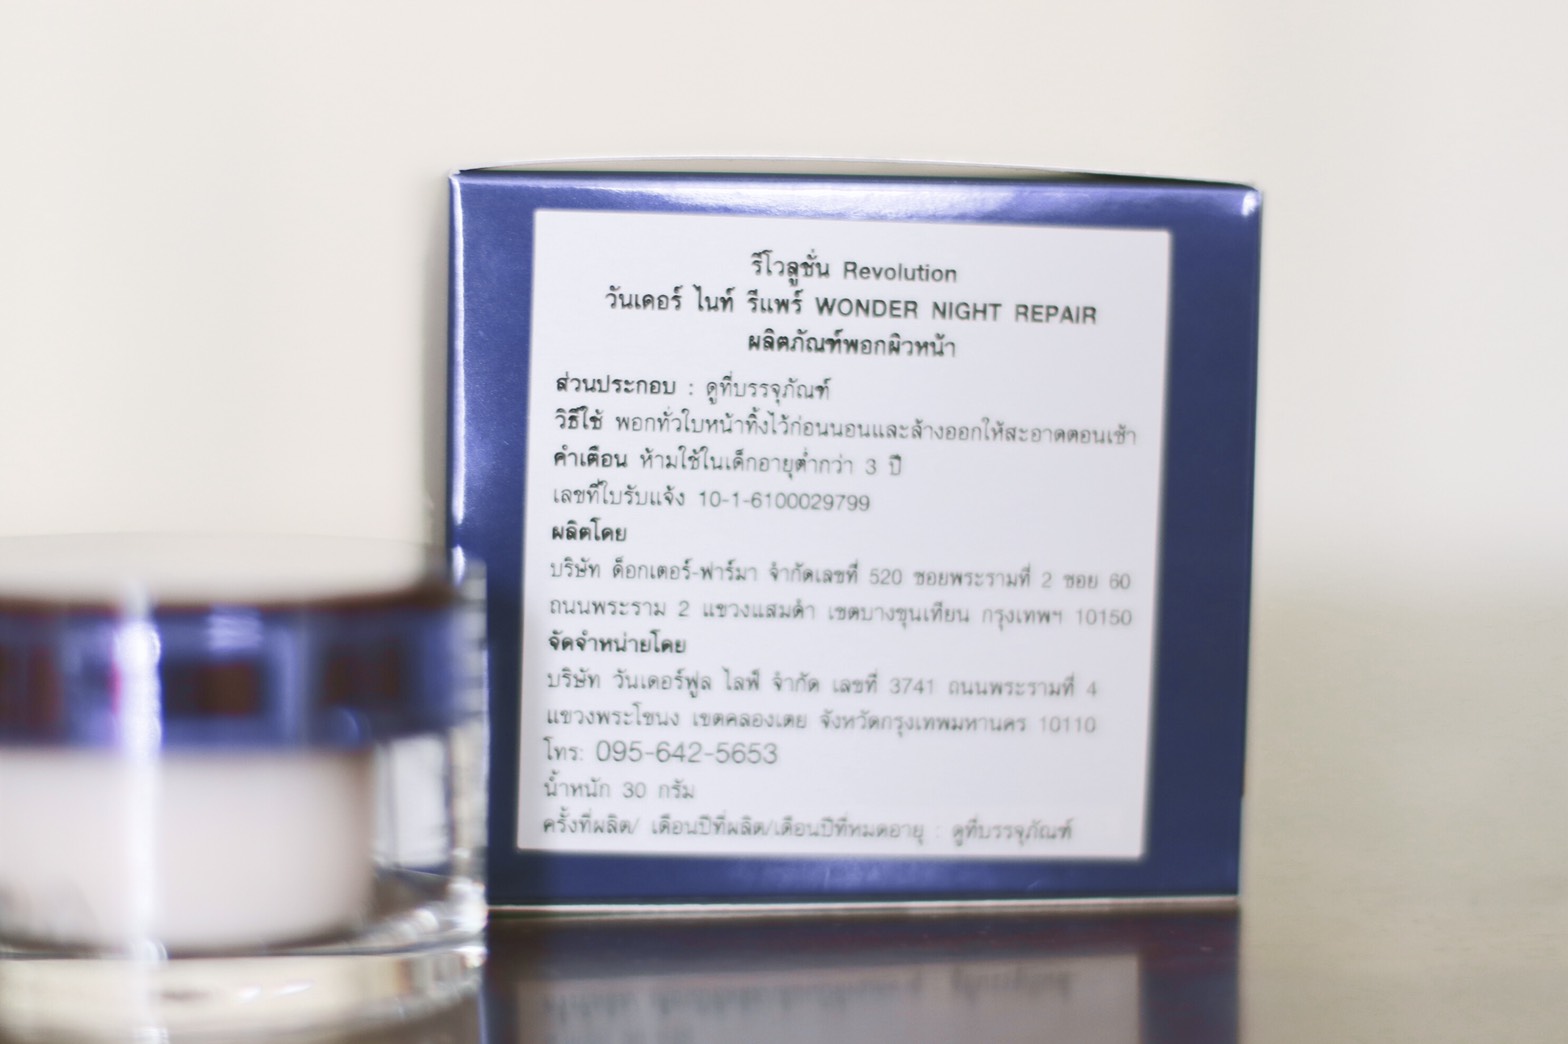 รีโวลูชั่น Revolution
วันเดอร์ ไนท์ รีแพร์ WONDER NIGHT REPAIR
ผลิตภัณฑ์พอกผิวหน้า
ส่วนประกอบ : ดูที่บรรจุภัณฑ์
วิธีใช้ พอกทั่วใบหน้าทิ้งไว้ก่อนนอนและล้างออกให้สะอาดตอนเช้า
คำเตือน ห้ามใช้ในเด็กอายุต่ำกว่า 3 ปี
เลขที่ใบรับแจ้ง 10-1-6100029799
ผลิตโดย
บริษัท ด็อกเตอร์-ฟาร์มา จำกัดเลขที่ 520 ซอยพระรามที่ 2 ซอย 60
ถนนพระราม 2 แขวงแสมดำ เขตบางขุนเทียน กรุงเทพฯ 10150
จัดจำหน่ายโดย
บริษัท วันเดอร์ฟูล ไลฟ์ จำกัด เลขที่ 3741 ถนนพระรามที่ 4
แขวงพระโขนง เขตคลองเตย จังหวัดกรุงเทพมหานคร 10110
โทร: 095-642-5653
น้ำหนัก 30 กรัม
ครั้งที่ผลิต/ เดือนปีที่ผลิต/เดือนปีที่หมดอายุ : ดูที่บรรจุภัณฑ์